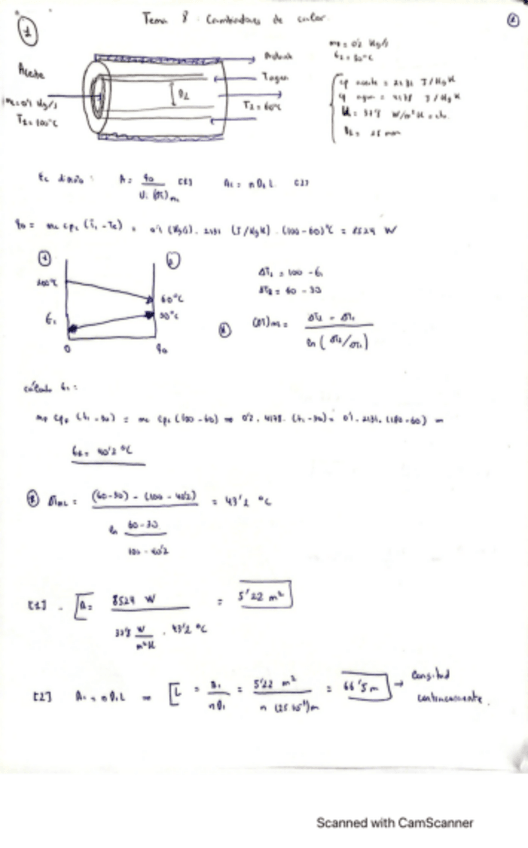 1
Tema 8: Cambiadores de calor.
Aceite
mc = 0'1 Kg/s
T1 = 100°C
D2
T agua
T2 = 60°C
mf = 0'2 Kg/s
t2 = 30°C
cp aceite = 2131 J/Kg K
cp agua = 4178 J/Kg K
U = 37'8 W/m²K = cte.
D2 = 25 mm
Ec. diseño: A = q0 / U·(DT)mL [1] A1 = π D1 L [2]
q0 = mc cpc (T1 - T2) = 0'1 (Kg/s) · 2131 (J/Kg K) · (100-60)°C = 8524 W
100°C
60°C
30°C
t1
0
q0
ΔT1 = 100 - t1
ΔT2 = 60 - 30
(DT)mL = ΔT2 - ΔT1 / ln (ΔT2/ΔT1)
cálculo t1:
mf cpf (t1 - 30) = mc cpc (100 - 60) ⇒ 0'2 · 4178 · (t1 - 30) = 0'1 · 2131 · (100 - 60) ⇒
t1 = 40'2 °C
ΔTmL = (60-30) - (100 - 40'2) / ln 60-30 / 100-40'2 = 43'2 °C
[1] . A = 8524 W / 37'8 W/m²K · 43'2 °C = 5'22 m²
[2] A1 = π D1 L ⇒ L = A1 / π D1 = 5'22 m² / π (25·10⁻³) m = 66'5 m → longitud
Scanned with CamScanner